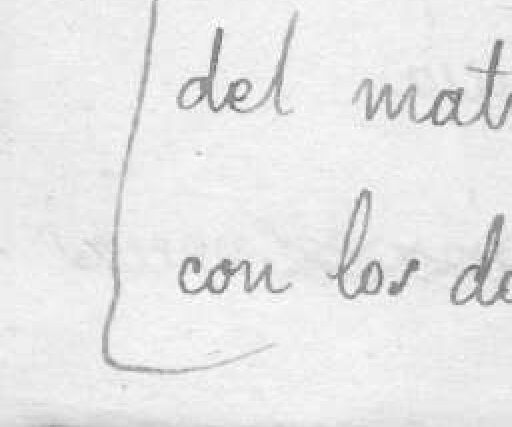 del mat
con los de